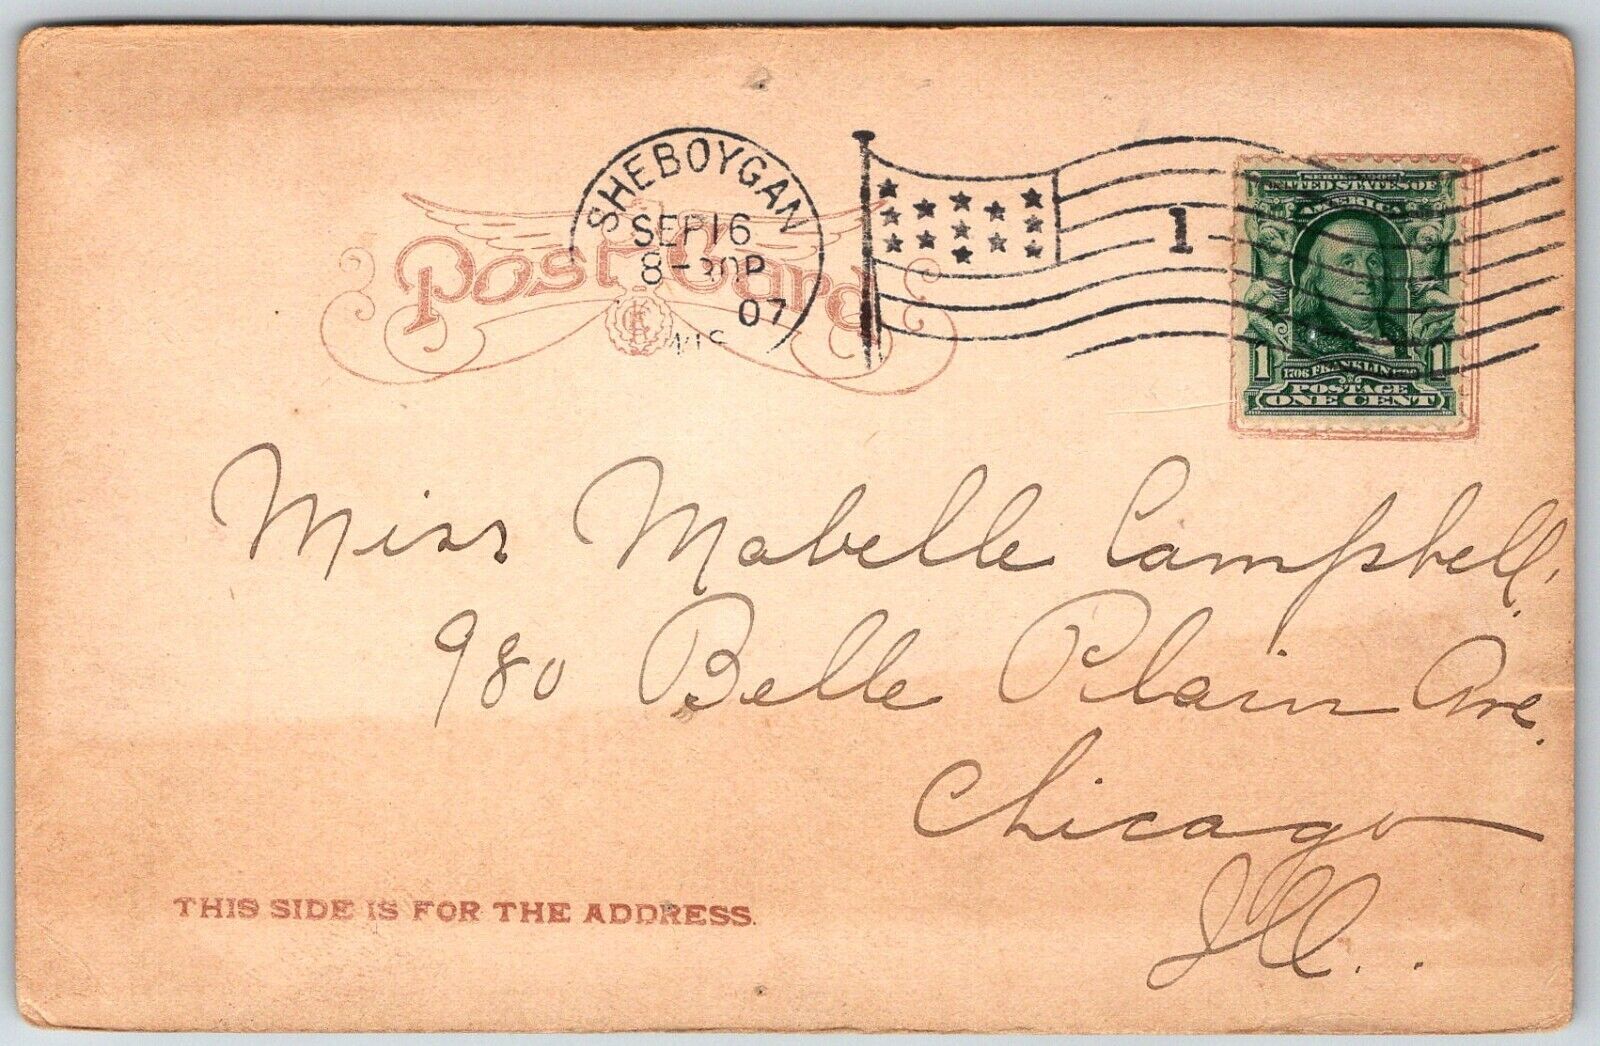 SHEBOYGAN
SEP 16
8-30P
07
WIS
Post Card
1
SERIES 1902
UNITED STATES OF
AMERICA
1706 FRANKLIN 1790
1 1
POSTAGE
ONE CENT
Miss Mabelle Campbell,
980 Belle Plain Ave.
Chicago
Ill..
THIS SIDE IS FOR THE ADDRESS.